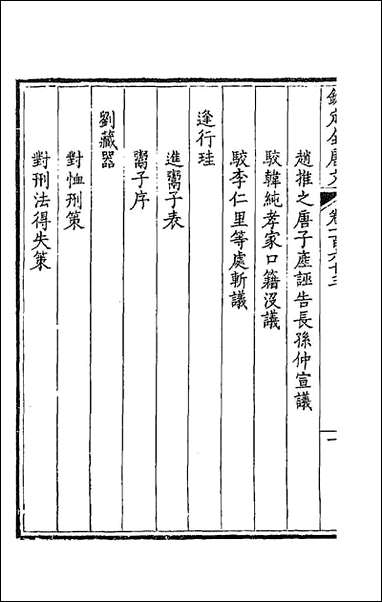 欽定全唐文
卷一百六十三
一
趙推之唐子產誣告長孫仲宣議
駮韓純孝家口籍沒議
駮李仁里等處斬議
逄行珪
進鬻子表
鬻子序
劉藏器
對恤刑策
對刑法得失策